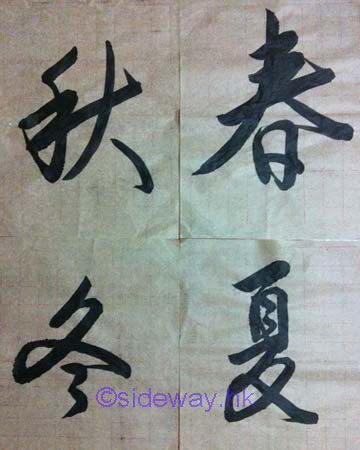 春夏
秋冬
©sideway.hk